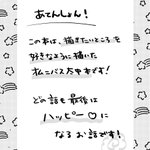 あてんしょん!
この本は、描きたいところを
好きなように描いた
オムニバス方中本です!
どの話も最後は
ハッピー♡に
なるお話です!